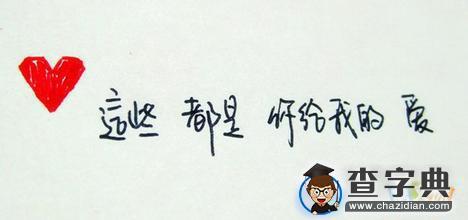 這些 都是 你给我的 爱
查字典
www.chazidian.com